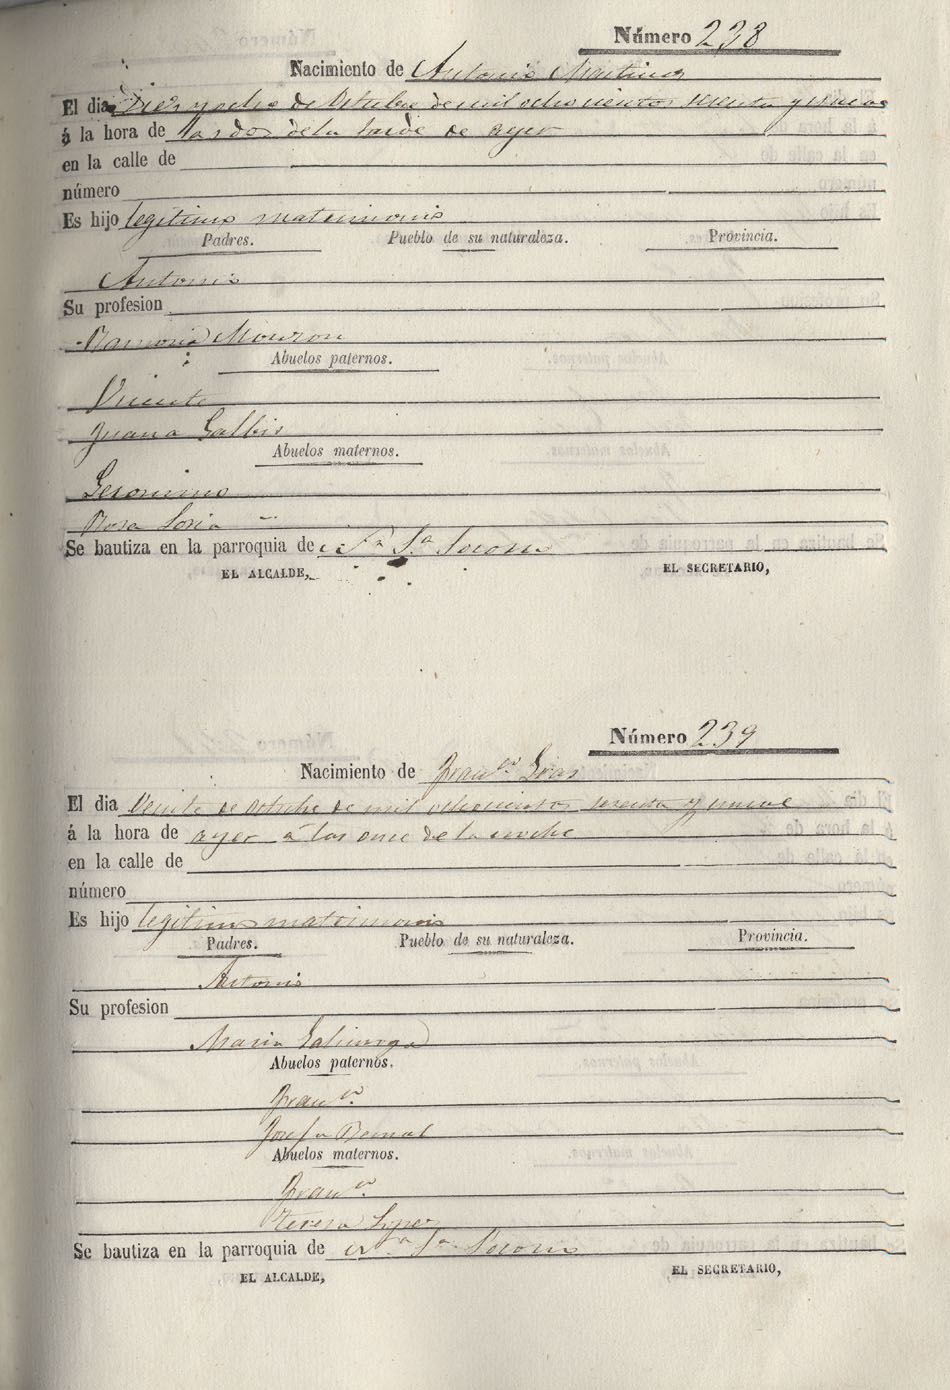 Número 238
Nacimiento de Antonio Martinez
El dia Diez y ocho de Octubre de mil ochocientos sesenta y nueve
á la hora de las dos de la tarde de ayer
en la calle de
número
Es hijo legitimo matrimonio
Padres. Pueblo de su naturaleza. Provincia.
Antonio
Su profesion
Ramona Monzon
Abuelos paternos.
Vicente
Juana Galbis
Abuelos maternos.
Geronimo
Rosa Soria
Se bautiza en la parroquia de
EL ALCALDE, EL SECRETARIO,
Número 239
Nacimiento de Franco. Gras
El dia Veinte de Octubre de mil ochocientos sesenta y nueve
á la hora de ayer á las once de la noche
en la calle de
número
Es hijo legitimo matrimonio
Padres. Pueblo de su naturaleza. Provincia.
Antonio
Su profesion
Maria
Abuelos paternos.
Franco.
Josefa Bernal
Abuelos maternos.
Franco.
Teresa Lopez
Se bautiza en la parroquia de
EL ALCALDE, EL SECRETARIO,